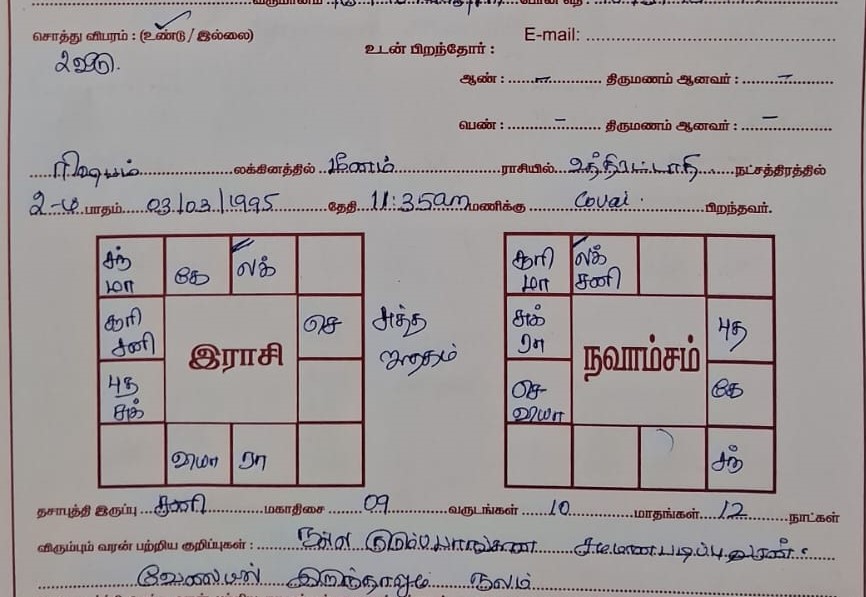 சொத்து விபரம் : (உண்டு / இல்லை)
E-mail:
2 வீடு.
உடன் பிறந்தோர் :
ஆண் : – திருமணம் ஆனவர் : –
பெண் : – திருமணம் ஆனவர் : –
ரிஷபம் லக்கினத்தில் மீனம் ராசியில் உத்திரட்டாதி நட்சத்திரத்தில்
2-ம் பாதம் 03/03/1995 தேதி 11:35am மணிக்கு Covai. பிறந்தவர்.
சந் மா கே லக்
சூரி சனி செ
இராசி
சுத்த ஜாதகம்
புத சுக்
ரா
சூரி மா லக் சனி
சுக் ரா புத
நவாம்சம்
செ வியா கே
சந்
தசாபுத்தி இருப்பு சனி மகாதிசை 09 வருடங்கள் 10 மாதங்கள் 12 நாட்கள்
விரும்பும் வரன் பற்றிய குறிப்புகள் : நல்ல
வேலையில் இருந்தாலும் நலம்